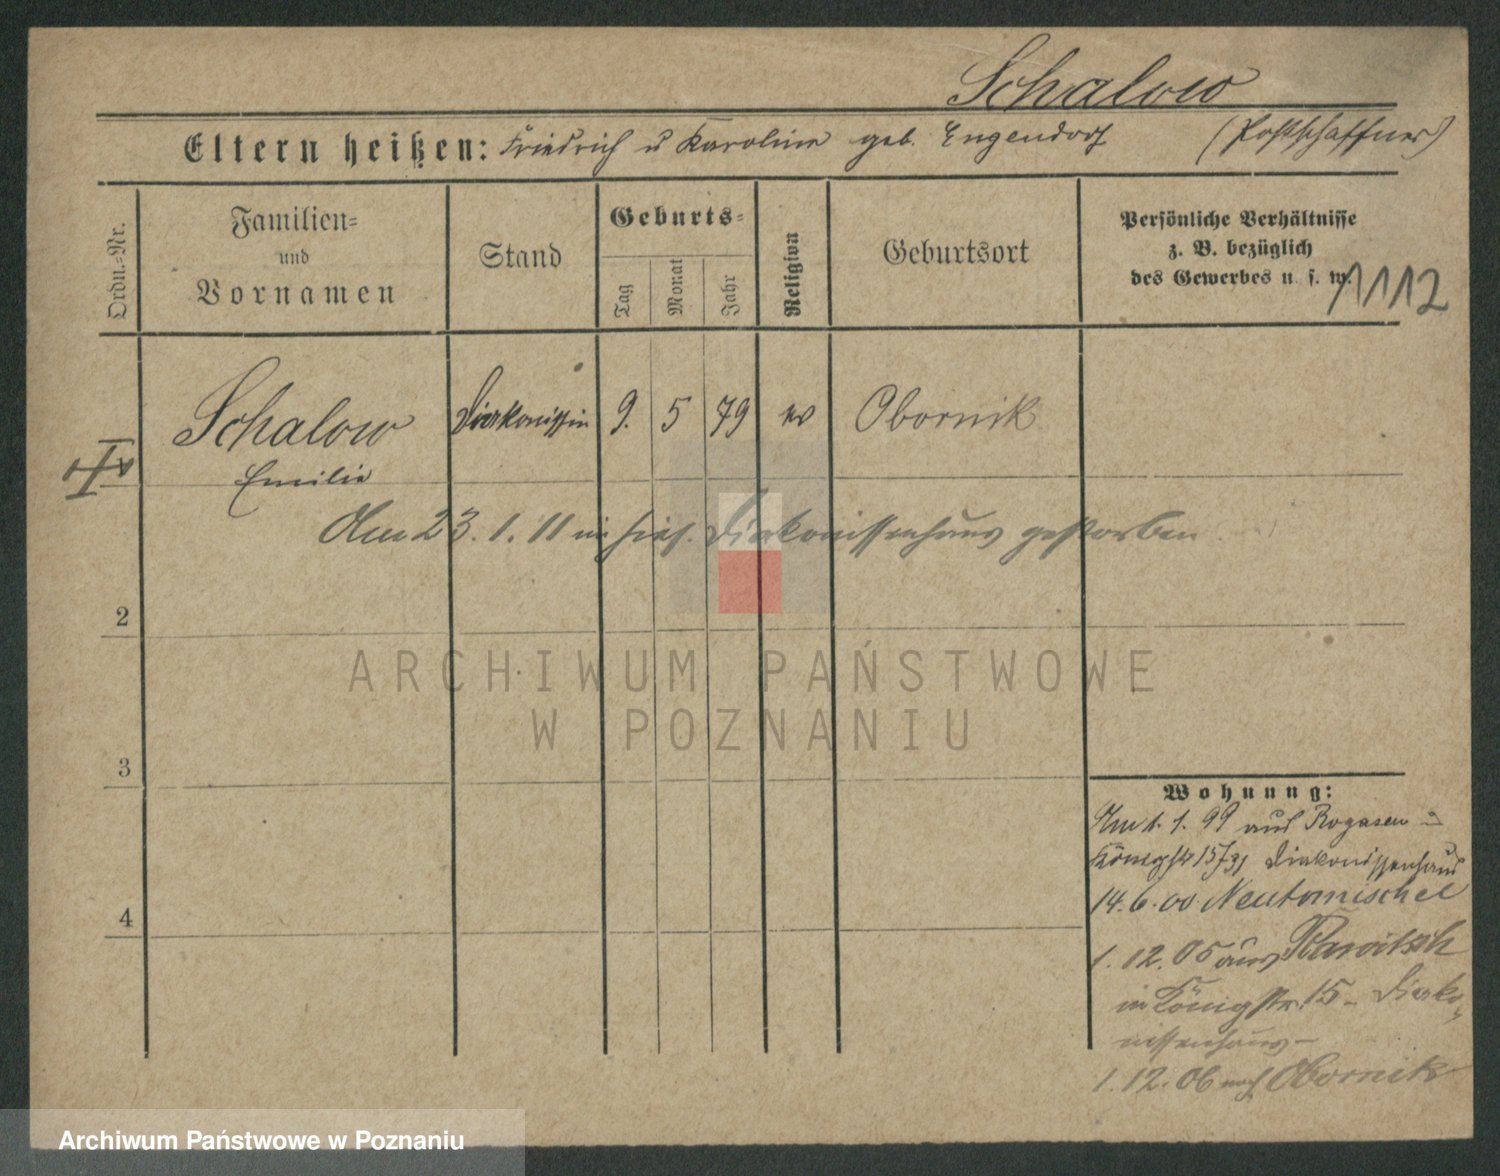 Schalow
Eltern heißen: Friedrich u Karoline geb. Engendorf (Postschaffner)
Ordn.-Nr.
Familien-
und
Vornamen
Stand
Geburts-
Tag
Monat
Jahr
Religion
Geburtsort
Persönliche Verhältnisse
z. B. bezüglich
des Gewerbes u. s. w.
1112
Schalow Diakonissin 9. 5 79 ev Obornik
Emilie
Am 23.1.11 im hies. Diakonissenhaus gestorben
2
ARCHIWUM PAŃSTWOWE
W POZNANIU
3
Wohnung:
Am 1.1.99 aus Rogasen in
Königstr 15 Diakonissenhaus
14.6.00 Neutomischel
4
1.12.05 aus Rawitsch
in Königstr. 15 - Diako-
nissenhaus -
1.12.06 nach Obornik
Archiwum Państwowe w Poznaniu